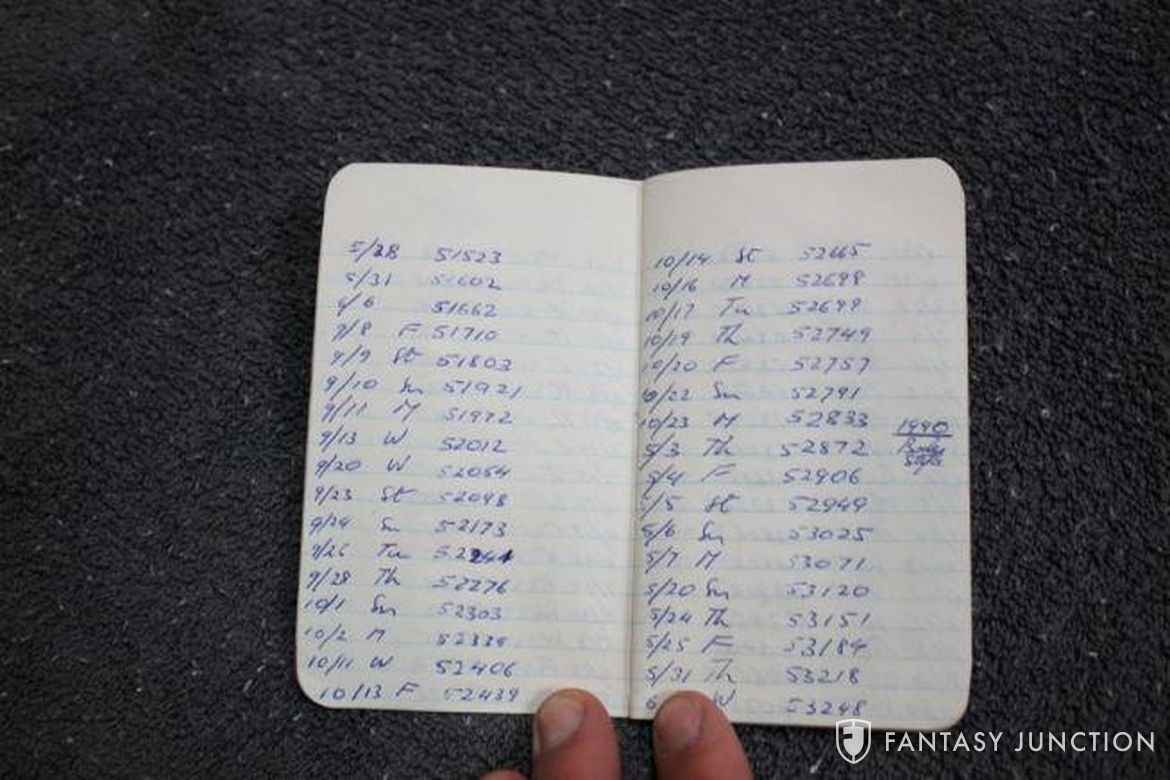 5/28 51523
5/31 51602
6/6 51662
9/8 F 51710
9/9 St 51803
9/10 Sn 51921
9/11 M 51972
9/13 W 52012
9/20 W 52054
9/23 St 52098
9/24 Sn 52173
9/26 Tu
9/28 Th 52276
10/1 Sn 52303
10/2 M 52339
10/11 W 52406
10/13 F 52439
10/14 St 52665
10/16 M 52698
10/17 Tu 52699
10/19 Th 52749
10/20 F 52757
10/22 Sn 52791
10/23 M 52833
1990
5/3 Th 52872
5/4 F 52906
5/5 St 52949
5/6 Sn 53025
5/7 M 53071
5/20 Sn 53120
5/24 Th 53151
5/25 F 53184
5/31 Th 53218
W 53248
FANTASY JUNCTION